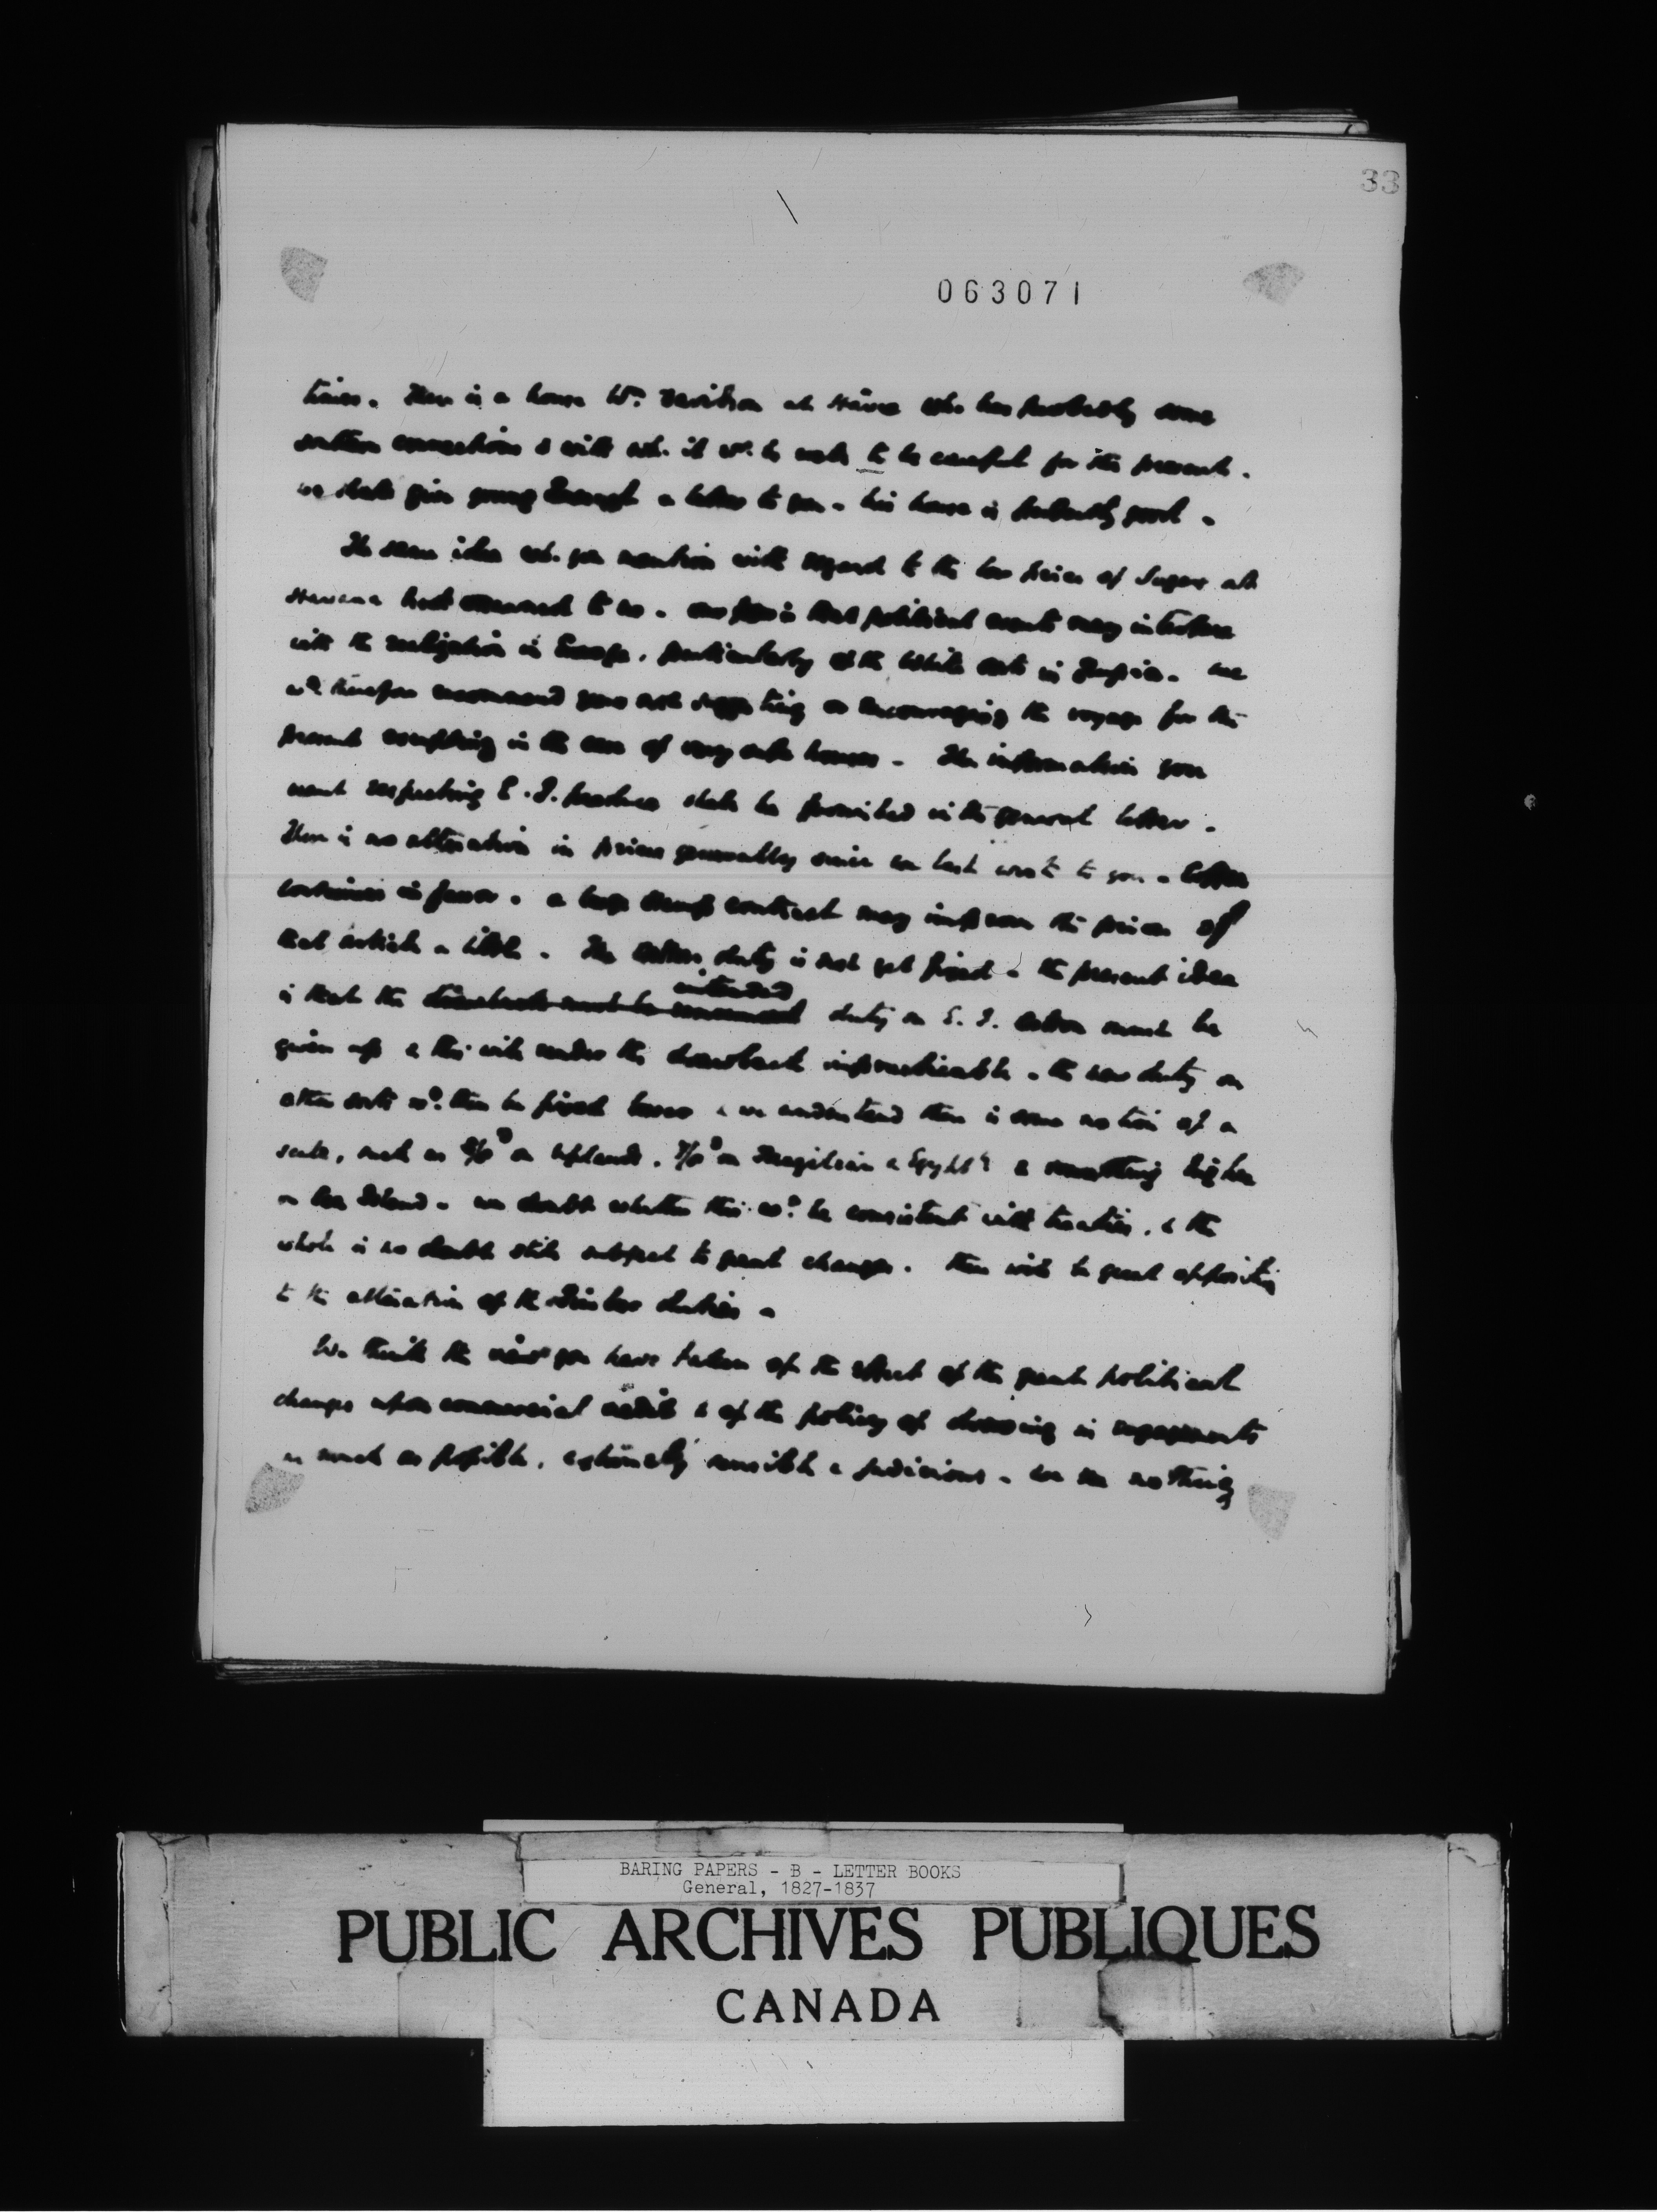 33
063071
ties. There is a house Wm. Davidson at Havre who has probably some
southern connections & with wh. it wd. be well to be careful for the present.
we shall give young a letter to you. his house is perfectly good.
The same idea wh. you mention with regard to the low price of Sugar at
Havana had occurred to us. our fear is that political events may interfere
with the realization in Europe, particularly of the White sorts in Russia. we
wd. therefore recommend your not suggesting or encouraging the voyage for the
present excepting in the case of very safe houses. The information you
want respecting E. I. produce shall be provided in the general letter.
There is no alteration in prices generally since we last wrote to you. Coffee
continues in favor. a large contract may improve the price of
that article a little. The Cotton duty is not yet fixed. the present idea
intended
is that the drawback must be duty on E. I. Cotton must be
given up & this will render the drawback impracticable. the low duty on
other sorts wd. then be fixed lower & we understand there is some notion of a
scale, such as on Uplands, on Brazilian & Egyptn. & something higher
on Sea Island. we doubt whether this wd. be consistent with treaties, & the
whole is no doubt still subject to great changes. there will be great opposition
to the alteration of the Timber duties.
We think the view you have taken of the effect of the great political
changes upon commercial credit & of the policy of drawing in engagements
as much as possible, extremely sensible & judicious. we see nothing
BARING PAPERS - B - LETTER BOOKS
General, 1827-1837
PUBLIC ARCHIVES PUBLIQUES
CANADA